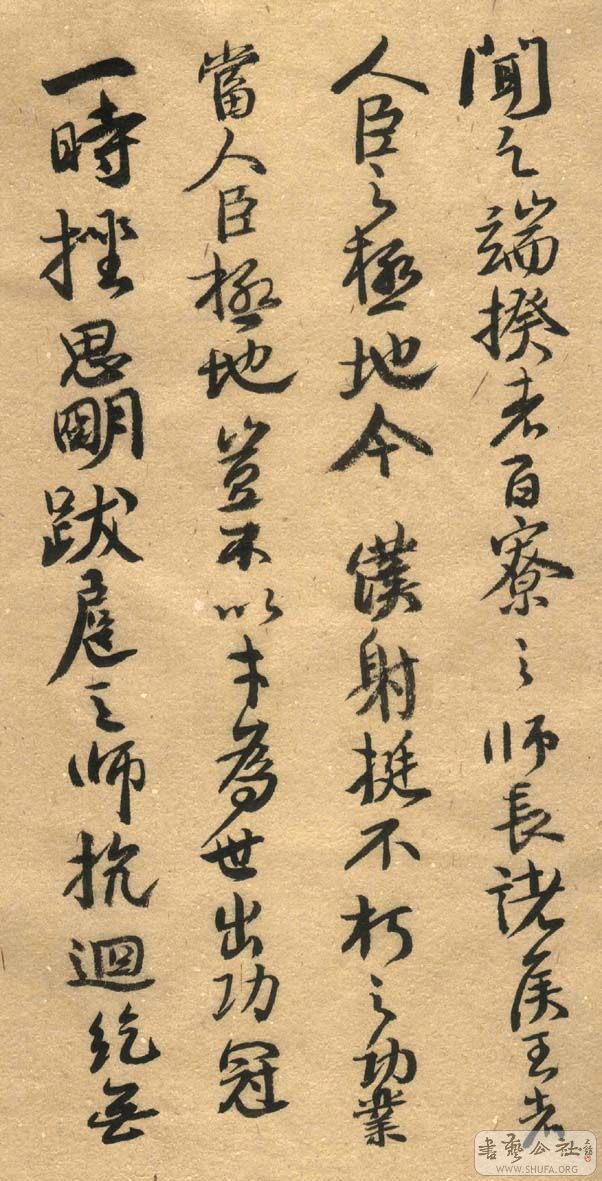 聞之端揆者百寮之師長諸侯王者
人臣之極地今僕射挺不朽之功業
當人臣極地豈不以才為世出功冠
一時挫思明跋扈之師抗迴紇無
書藝公社
WWW.SHUFA.ORG